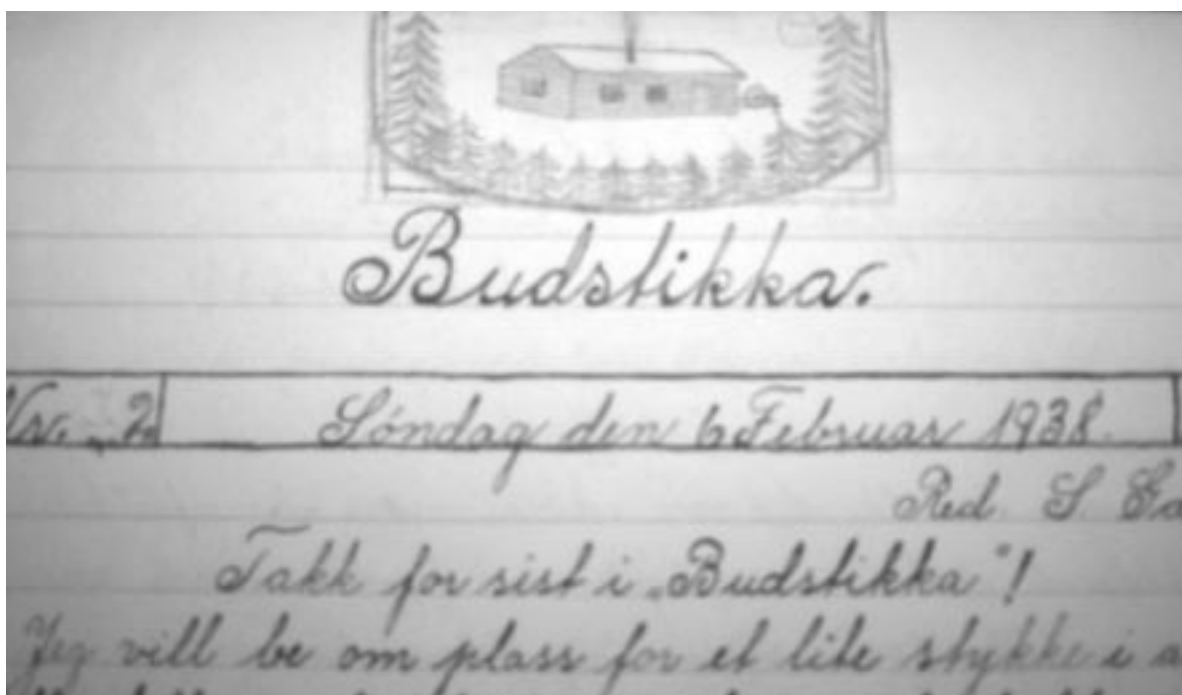 Budstikka.
Nr. 2. Søndag den 6 Februar 1938.
Red. S.
Takk for sist i „Budstikka"!
Jeg vill be om plass for et lite stykke i